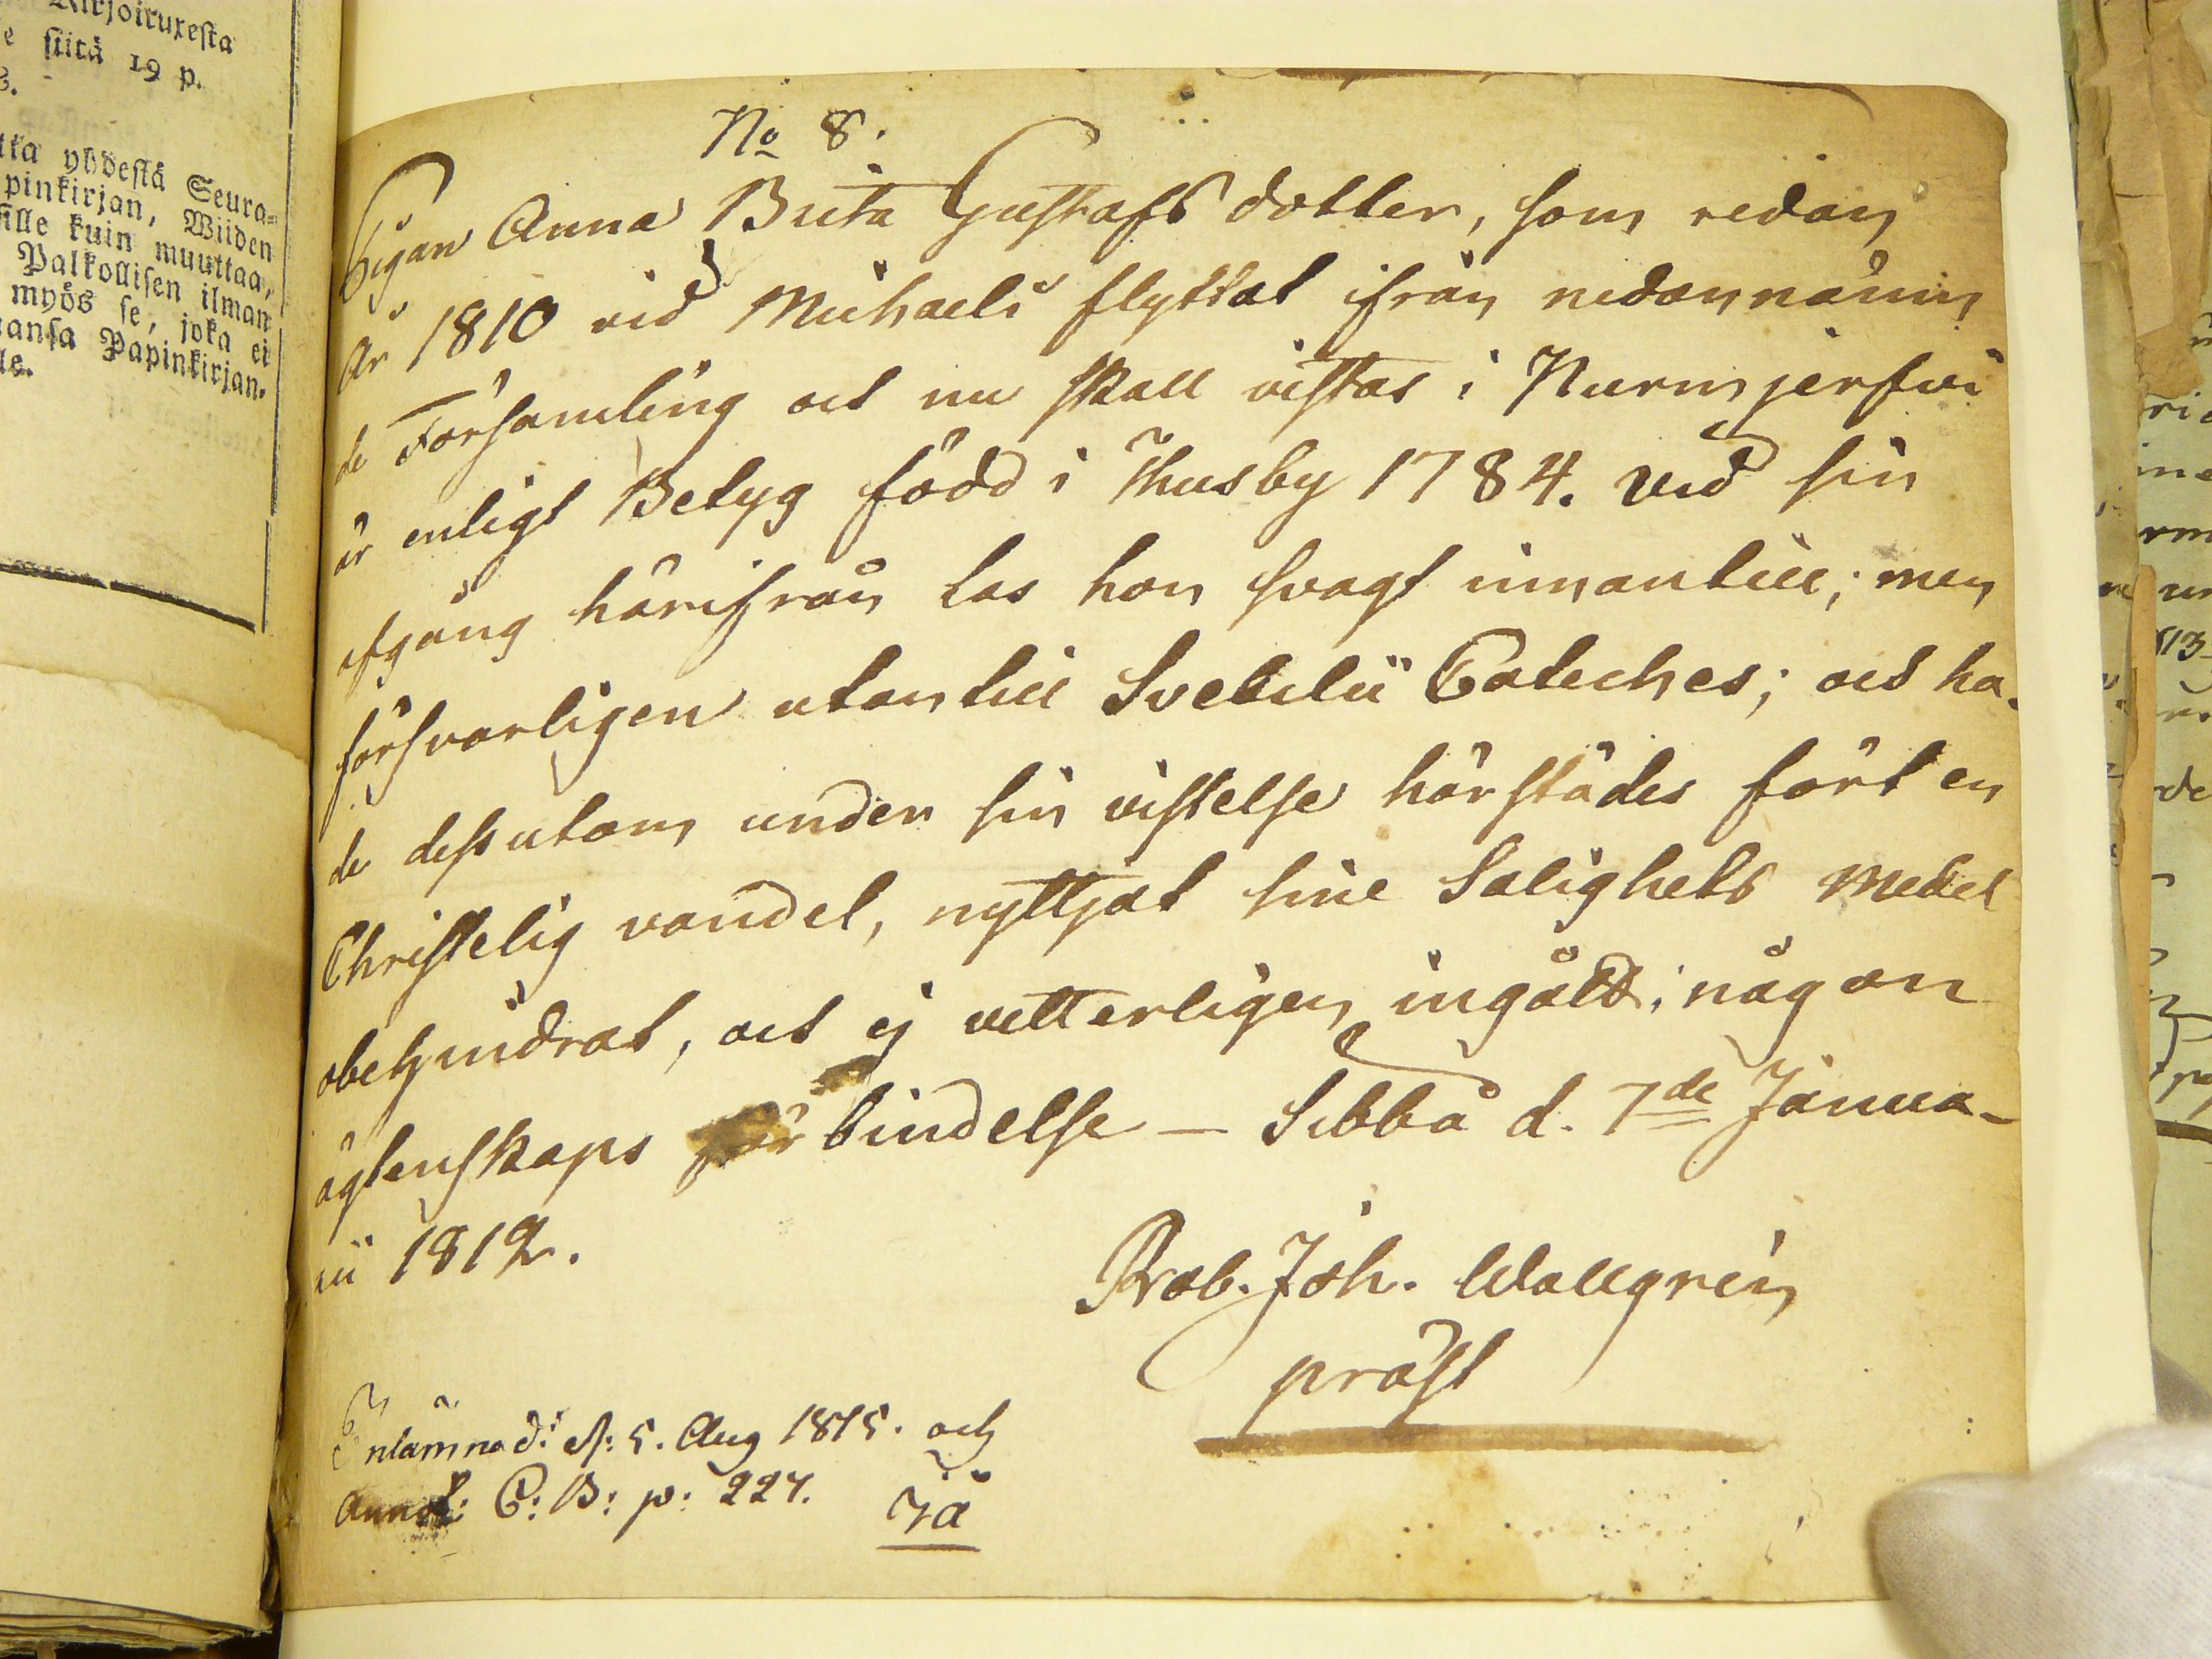 Kirjoituxesta
e siitä 19 p.
3.
yhdestä Seura-
pinkirjan, Wiiden
sille kuin muuttaa,
Palkollisen ilman
myös se, joka ei
Papinkirjan.
No 8.
Pigan Anna Brita Gustafs dotter, som redan
År 1810 vid Michaeli flyttat ifrån nedannämn
de Församling och nu skall vistas i Nurmjerfvi
är enligt Betyg född i Thusby 1784. Vid sin
afgång härifrån las hon svagt innantill; men
försvarligen utantill Svebilii Cateches; och ha-
de dessutom under sin vistelse härstädes fört en
Christelig vandel, nyttjat sine Salighets Medel
obehindrat, och ej vetterligen ingådt i någon
ägtenskaps förbindelse – Sibbå d. 7de Janua-
rii 1812.
Prob. Joh. Wallgrén
präst
Inlämnad: d: 5. Aug 1815. och
Annot: C: B: p: 227.